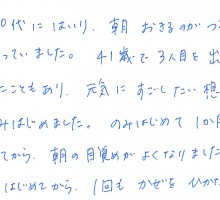 0代にはいり、朝 おきるのが つ
っていました。 41歳で3人目を出
たこともあり、元気にすごしたい想
みはじめました。 のみはじめて 1か月
てから、朝の目覚めがよくなりました
はじめてから、1回も かぜを ひかな